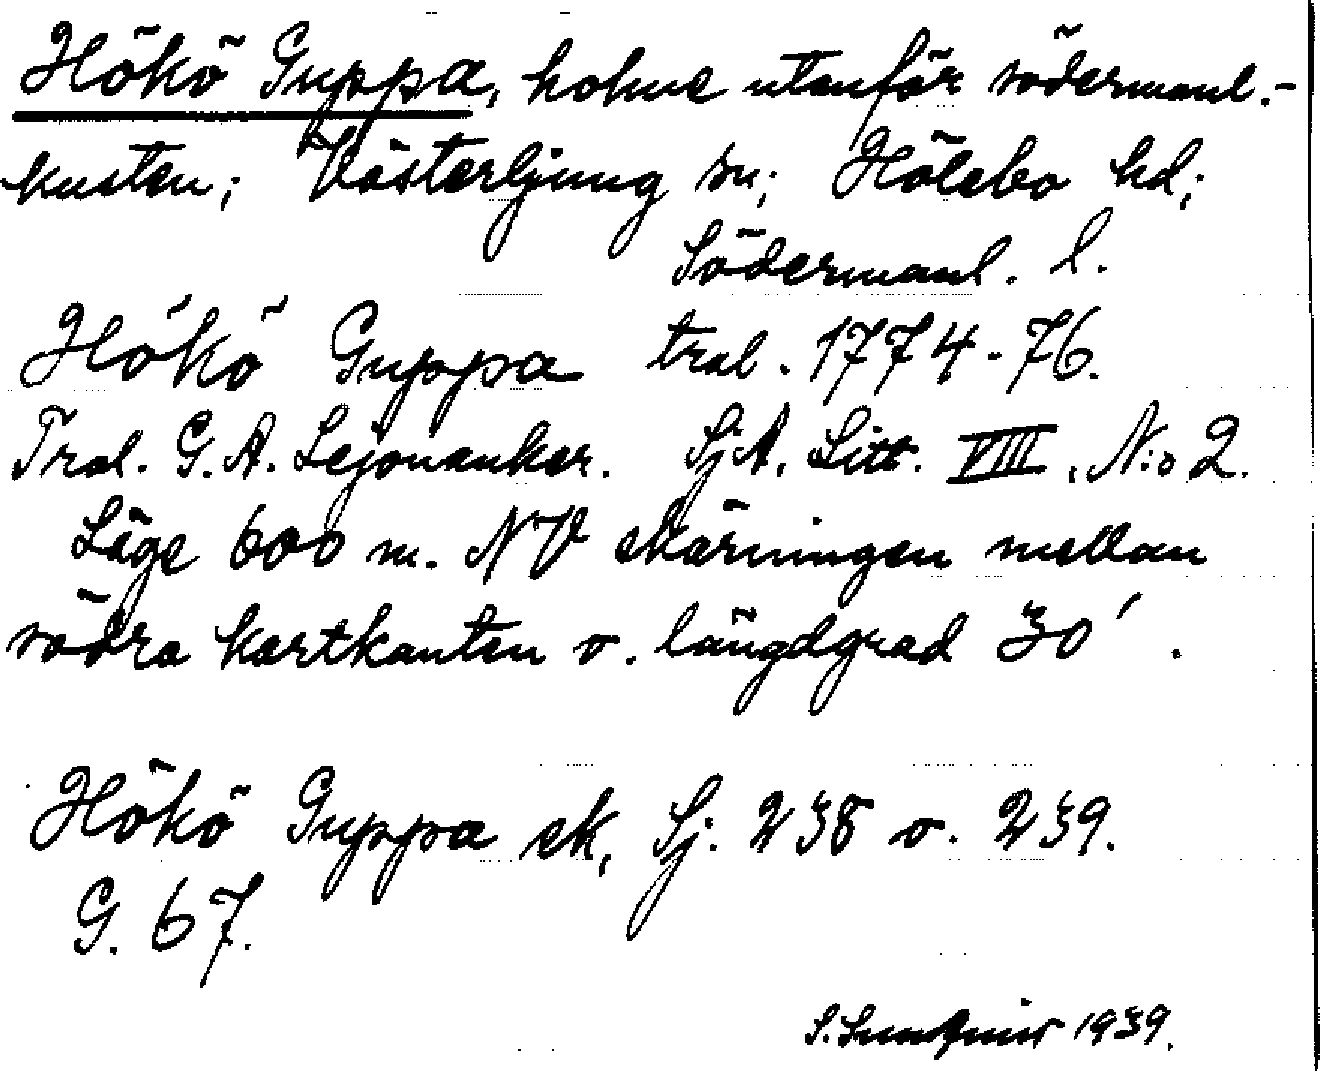 Hökö Guppa, holme utanför södermanl.-
kusten; Västerljung sn; Hölebo hd;
Södermanl. l.
Hökö Guppa tral. 1774-76.
Tral. G.A. Lejonanker. SjA, Litt. VIII, N:o 2.
Läge 600 m. NV skärningen mellan
södra kartkanten o. längdgrad 30'.
Hökö Guppa ek, Sj. 238 o. 239.
G. 67.
S. 1939.